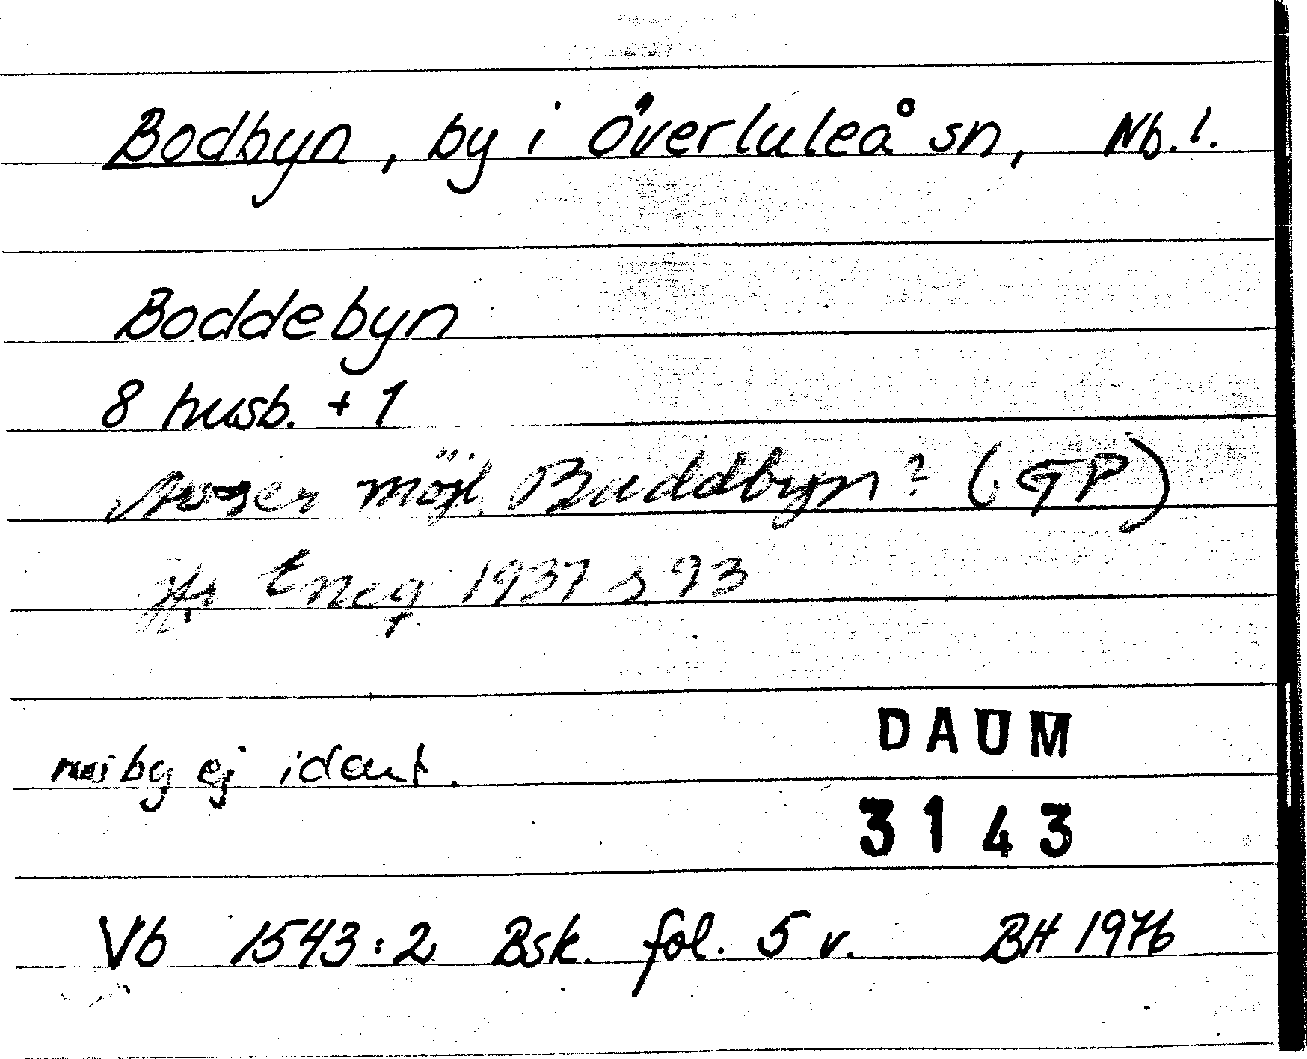 Bodbyn, by i Överluleå sn, Nb. l.
Boddebyn
8 husb. + 1
Avser möjl. Buddbyn? (GP)
Jfr Eneq 1937 s 93
by ej ident.
DAUM
3143
Vb 1543:2 Bsk. fol. 5 v. BH 1976